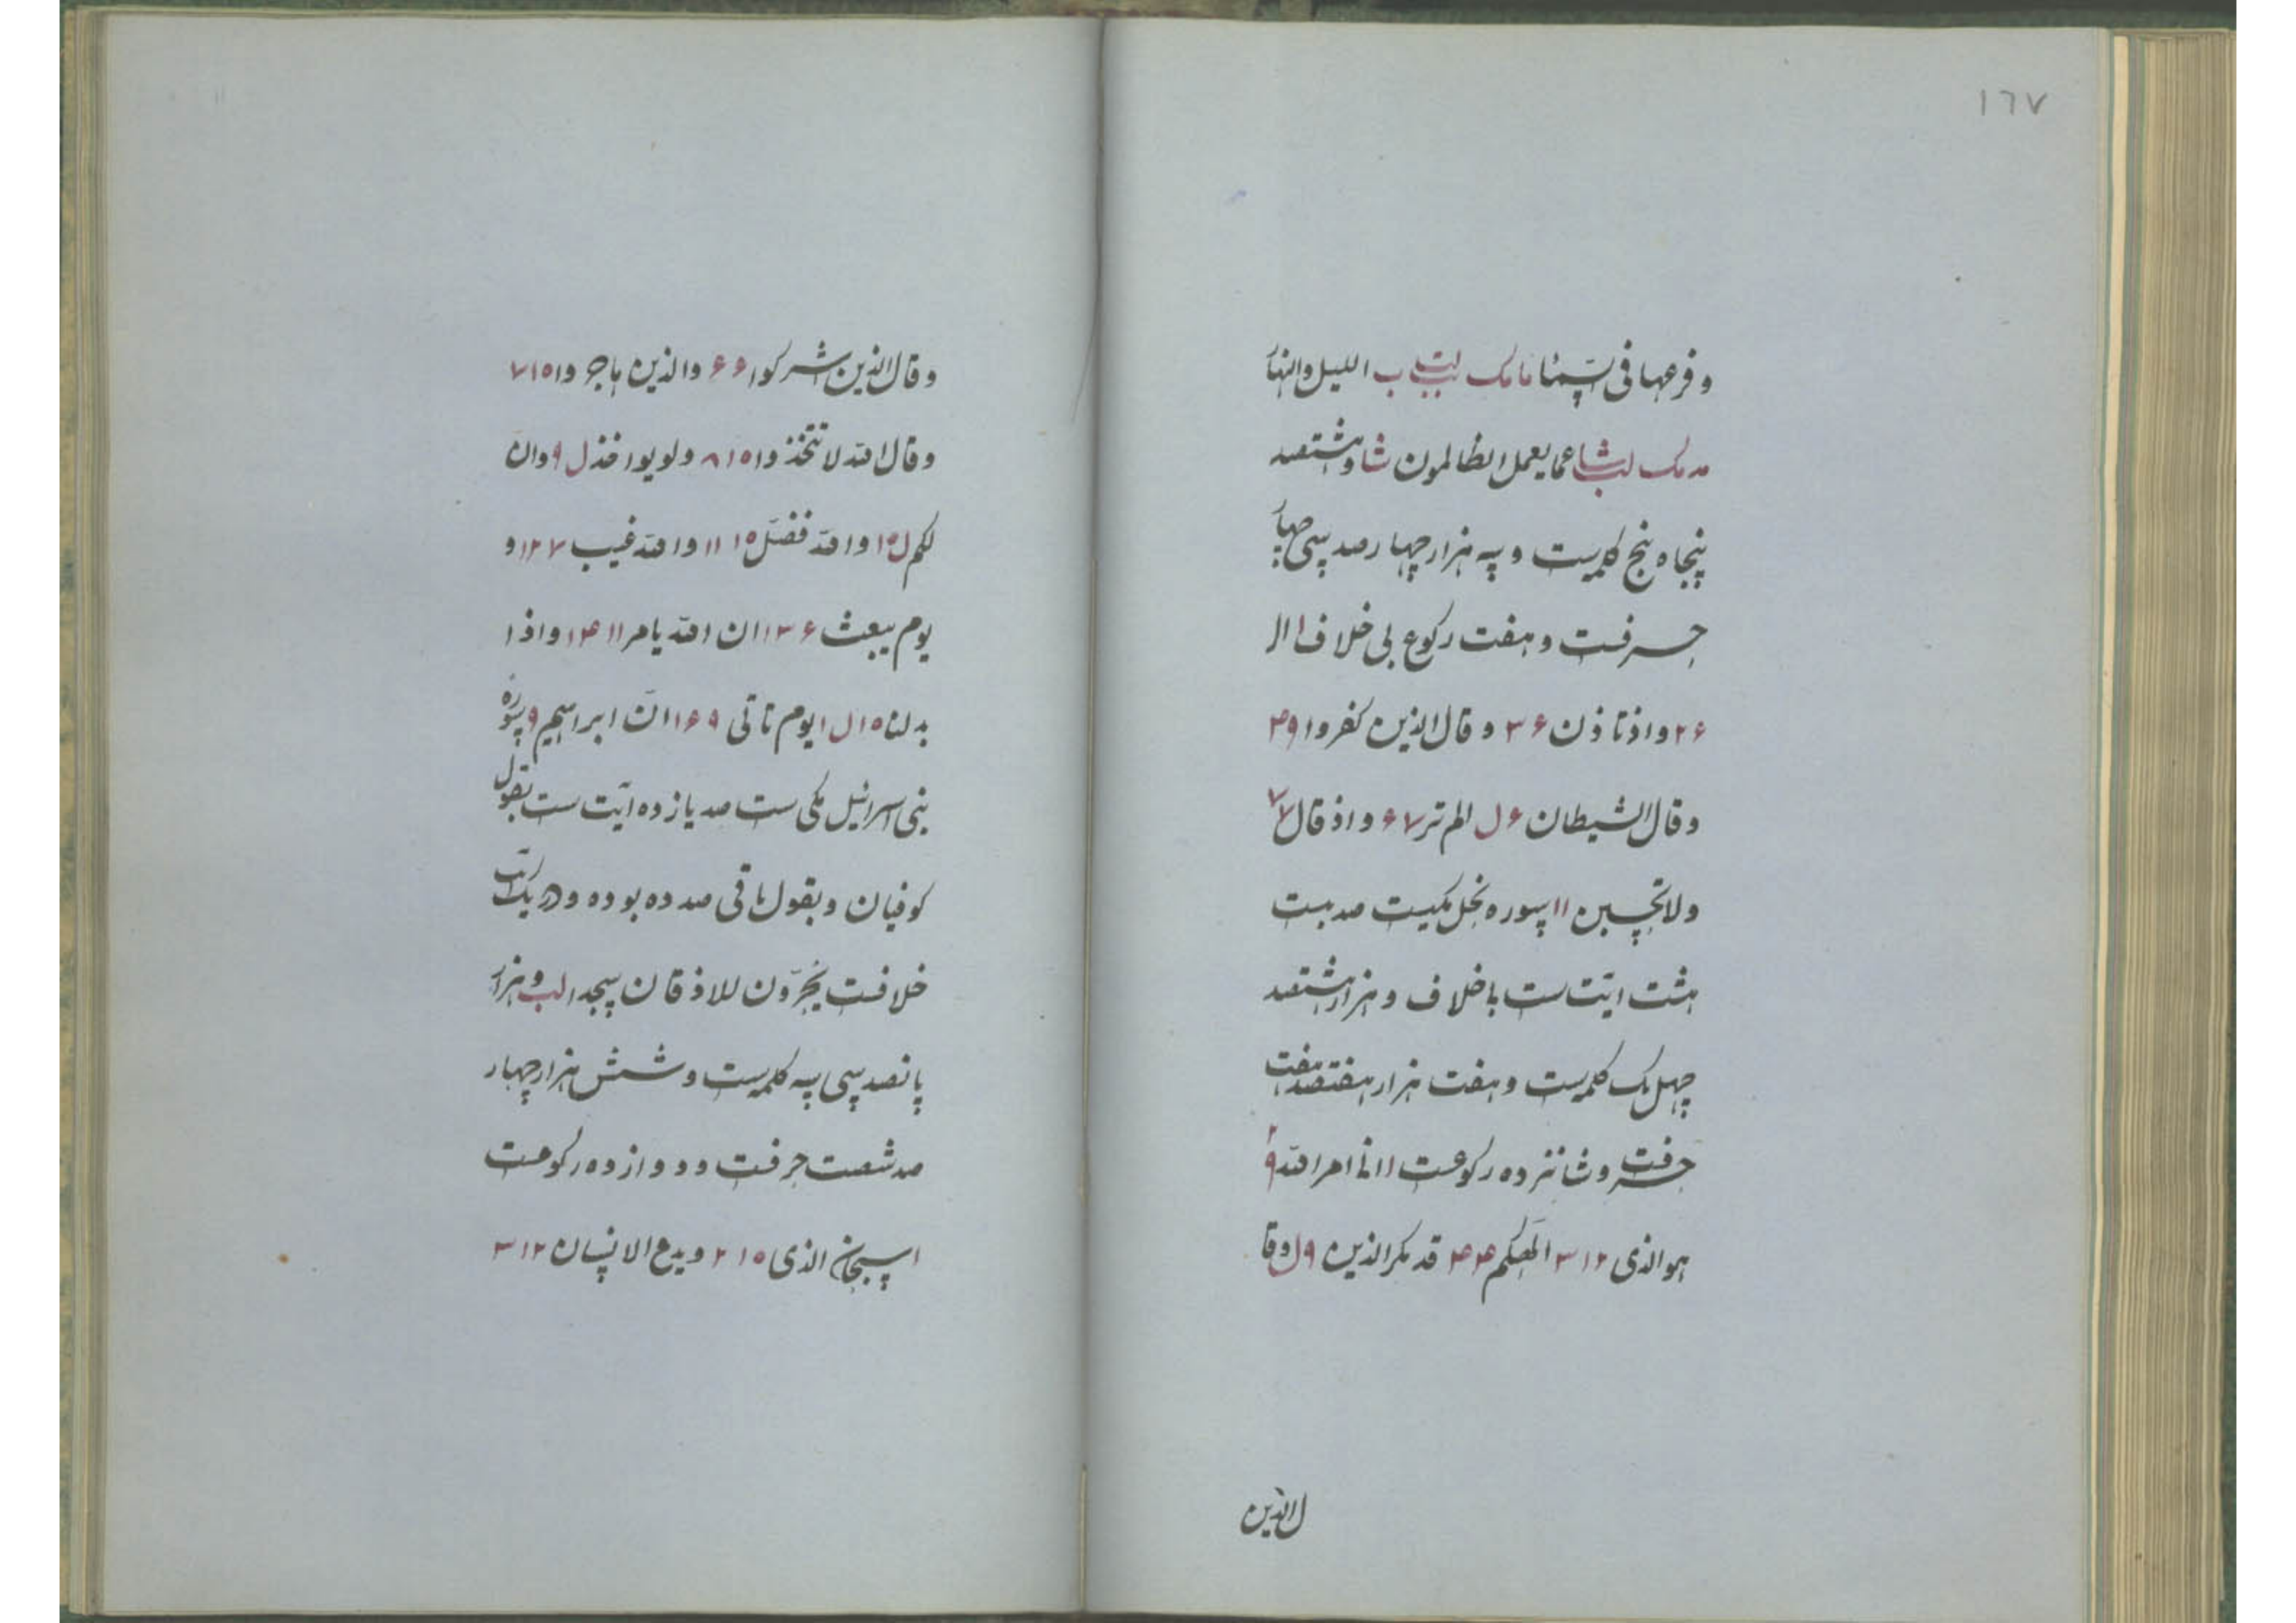 ١٦٧
وفرعها فی السمآء مامک لبتب ب اللیل والنهار
مدمک لب شا عما یعمل الظالمون شا و هشتصد
پنجاه پنج کلمه‌ست و سه هزار چهار صد سی چهار
حرفست و هفت رکوع بی خلاف ا الر
۲۶ واذ تاذن ۳۶ وقال الذین کفروا ۹ ۴
وقال الشیطان ۶ ل الم تر ۶۷ واذ قال ۷ ۷
ولا تحسبن ۱۱ سوره نحل مکیست صد بست
هشت ایت ست با خلاف و هزار هشتصد
چهل یک کلمه‌ست و هفت هزار هفتصد هفت
حرفست و شانزده رکوعست ا اتی امر الله ۹ ۲
هو الذی ۱۲ ۳ الهکم ۴ ۴ قد مکر الذین ۹ ل وقا
ل الذین
وقال الذین اشرکوا ۶ ۶ والذین هاجروا ۱۵ ۷
وقال الله لا تتخذوا ۱۵ ۸ ولو یواخذ ل ۹ وان
لکم ل ۱۵ والله فضل ۱۵ ۱۱ والله غیب ۷ ۱۲ و
یوم یبعث ۶ ۱۳ ان الله یامر ۱۱ ۱۴ واذا
بدلنا ۱۵ ل ایوم تاتی ۹ ۱۶ ان ابراهیم ۹ سوره
بنی اسرائیل مکی ست صد یازده ایت ست بقول
کوفیان و بقول باقی صد ده بوده و در یک ایت
خلافست یخرّون للاذقان سجدا لب و هزار
پانصد سی سه کلمه‌ست و شش هزار چهار
صد شصت حرفست و دوازده رکوعست
ا سبحان الذی ۱۵ ۲ ویدع الانسان ۱۲ ۳